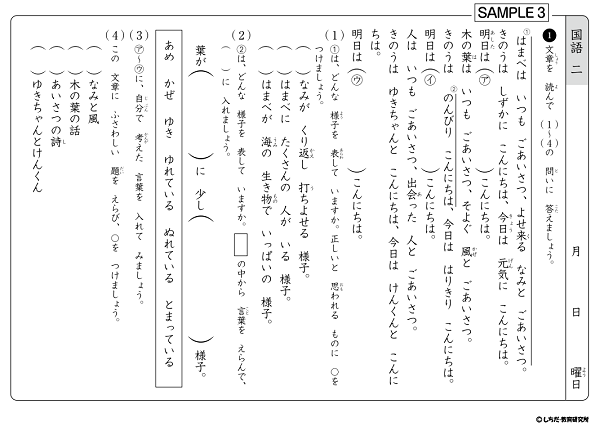 SAMPLE 3
国語 二
月 日 曜日
❶ 文章を 読んで (1)～(4)の 問いに 答えましょう。
①はまべは いつも ごあいさつ、よせ来る なみと ごあいさつ。
きのうは しずかに こんにちは、今日は 元気に こんにちは。
明日は(㋐ )こんにちは。
木の葉は いつも ごあいさつ、そよぐ 風と ごあいさつ。
きのうは ②のんびり こんにちは、今日は はりきり こんにちは。
明日は(㋑ )こんにちは。
人は いつも ごあいさつ、出会った 人と ごあいさつ。
きのうは ゆきちゃんと こんにちは、今日は けんくんと こんに
ちは。
明日は(㋒ )こんにちは。
(1) ①は、どんな 様子を 表して いますか。正しいと 思われる ものに ○を
つけましょう。
( )なみが くり返し 打ちよせる 様子。
( )はまべに たくさんの 人が いる 様子。
( )はまべが 海の 生き物で いっぱいの 様子。
(2) ②は、どんな 様子を 表して いますか。□の中から 言葉を えらんで、
( )に 入れましょう。
葉が( )に 少し( )様子。
あめ かぜ ゆき ゆれている ぬれている とまっている
(3) ㋐～㋒に、自分で 考えた 言葉を 入れて みましょう。
(4) この 文章に ふさわしい 題を えらび、○を つけましょう。
( )なみと風
( )木の葉の話
( )あいさつの詩
( )ゆきちゃんとけんくん
©しちだ・教育研究所